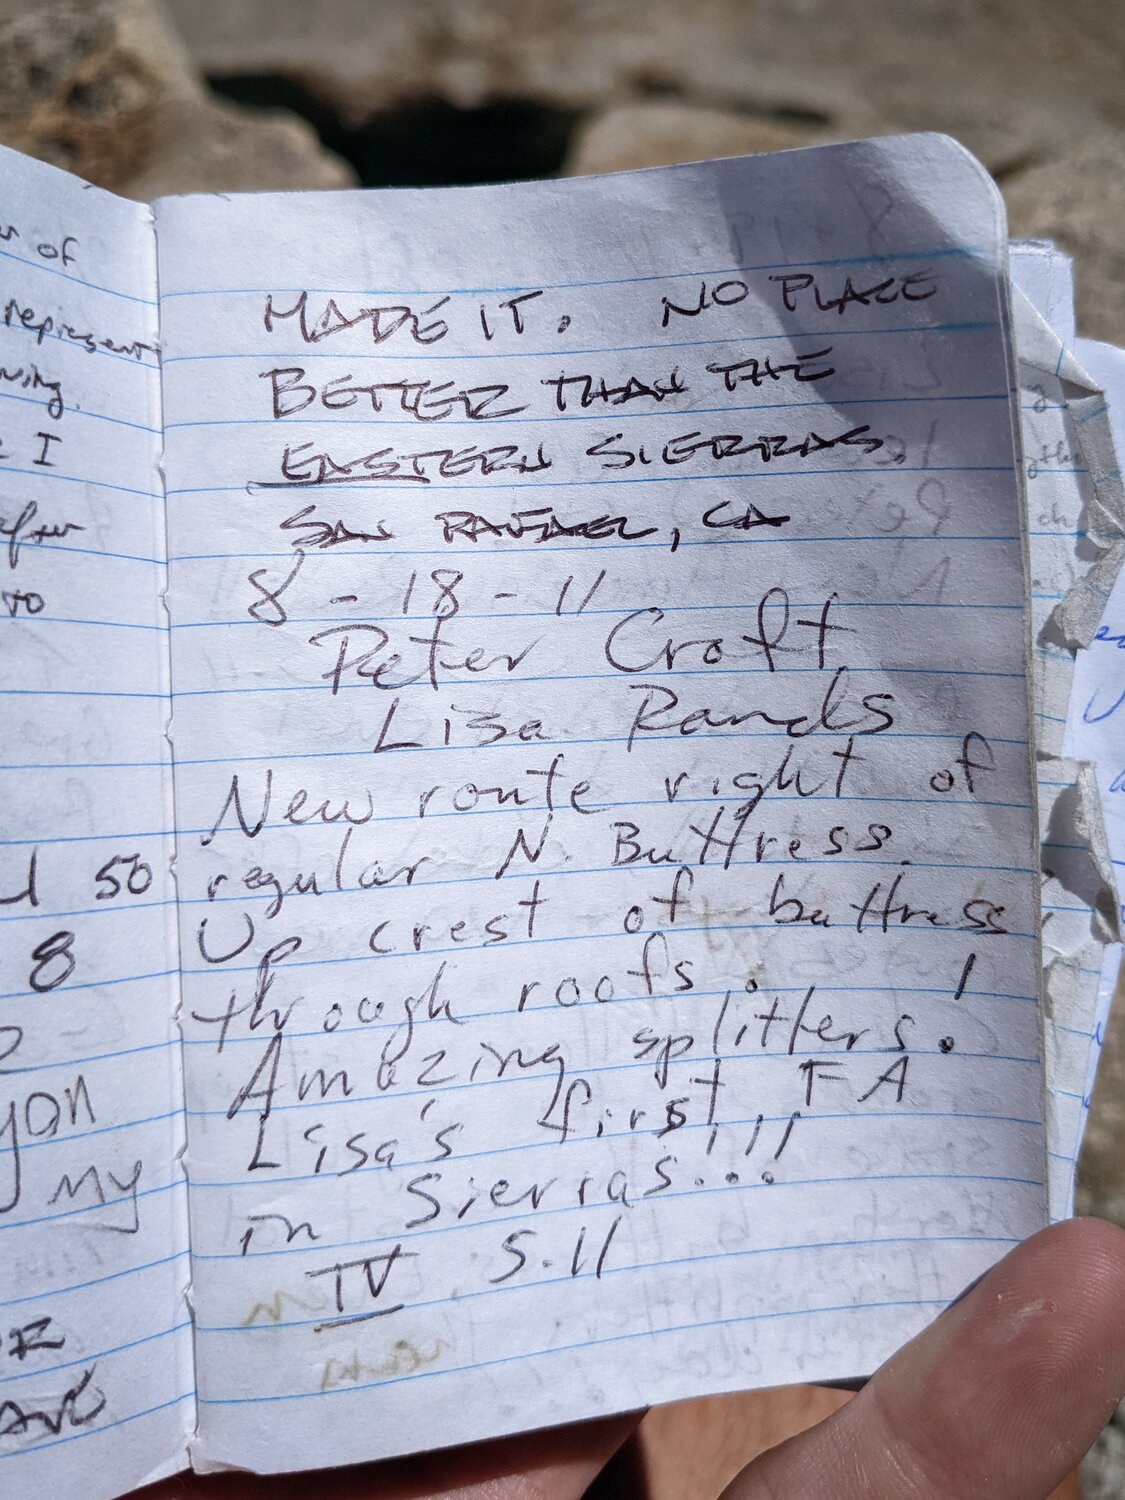 of
represent
I
to
50
8
my
MADE IT. NO PLACE
BETTER THAN THE
EASTERN SIERRAS.
SAN RAFAEL, CA
8-18-11
Peter Croft
Lisa Rands
New route right of
regular N. Buttress.
Up crest of buttress
through roofs.
Amazing splitters!
Lisa's first FA
in Sierras!!!
IV 5.11